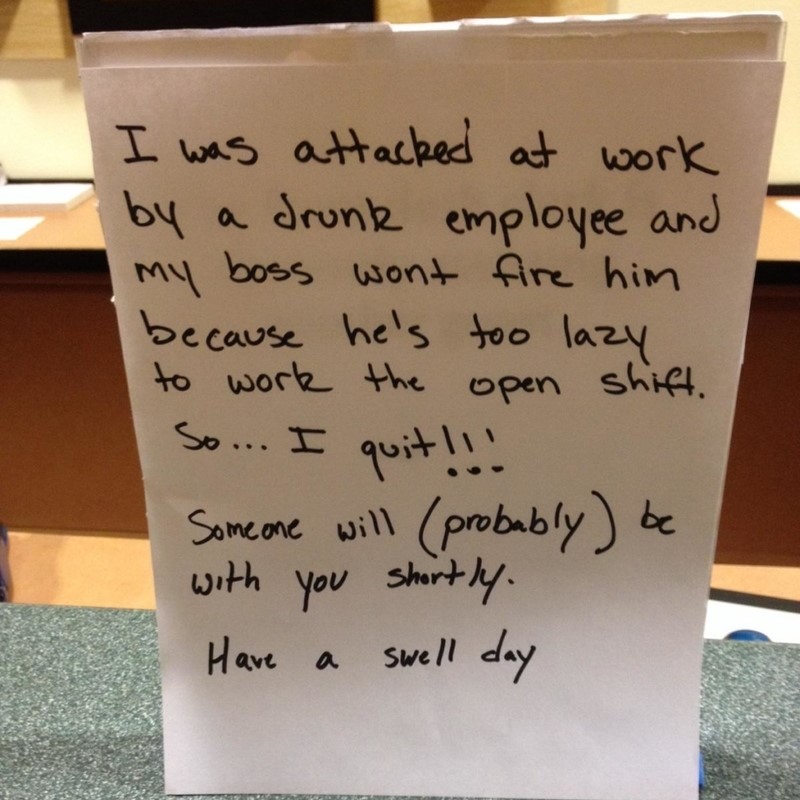 I was attacked at work
by a drunk employee and
my boss wont fire him
because he's too lazy
to work the open shift.
So... I quit!!!
Someone will (probably) be
with you shortly.
Have a swell day